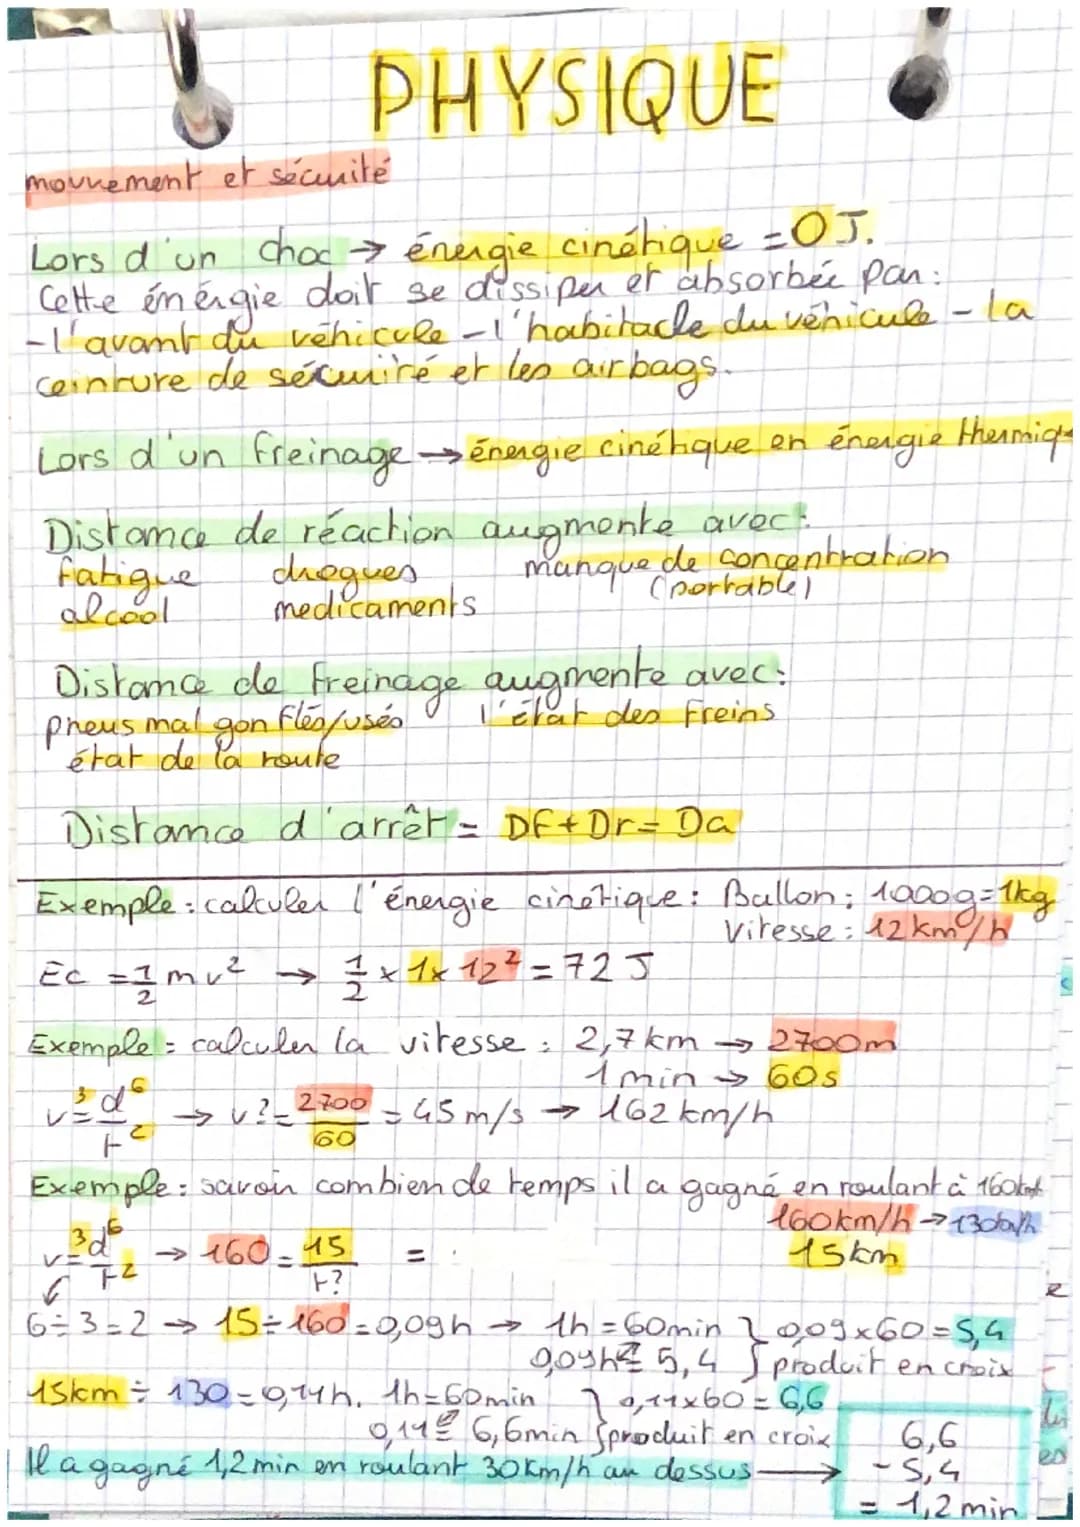 PHYSIQUE
mouvement et sécurité
Lors d'un choc → énergie cinétique = 0 J.
Cette énérgie doit se dissiper et absorbée par:
- l'avant du véhicule - l'habitacle du véhicule - la
ceinture de sécurité et les airbags.
Lors d'un freinage → énergie cinétique en énergie thermiq
Distance de réaction augmente avec:
fatigue drogues manque de concentration
(portable)
alcool medicaments
Distance de freinage augmente avec:
pneus mal gonflés/usés l'état des freins
état de la route
Distance d'arrêt = DF + Dr = Da
Exemple: calculer l'énergie cinétique: Ballon: 1000g = 1kg
Vitesse: 12 km/h
Ec = 1/2 m v² → 1/2 x 1 x 12² = 72 J
Exemple: calculer la vitesse: 2,7 km → 2700m
1 min → 60s
v = d/t 3 6 2 → v? = 2700/60 = 45 m/s → 162 km/h
Exemple: savoir combien de temps il a gagné en roulant à 160km/h
160km/h → 130km/h
v = d/t 3 6 2 → 160 = 15/t? = 15km
6 ÷ 3 = 2 → 15 ÷ 160 = 0,09h → 1h = 60min } 0,09 x 60 = 5,4
0,09h = 5,4 } produit en croix
15km ÷ 130 = 0,11h. 1h = 60min } 0,11 x 60 = 6,6
0,11 = 6,6min } produit en croix
6,6
Il a gagné 1,2 min en roulant 30 km/h au dessus → - 5,4
= 1,2 min